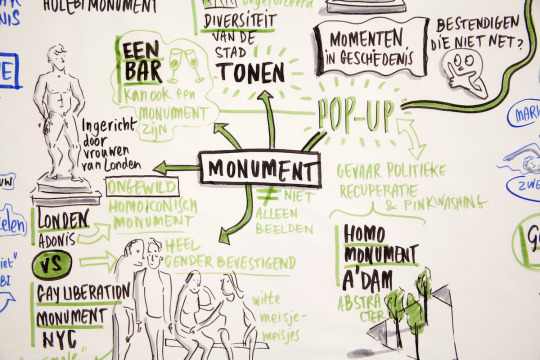 HOLEBI MONUMENT
DIVERSITEIT
VAN DE
STAD
TONEN
MOMENTEN
IN GESCHIEDENIS
BESTENDIGEN
DIE NIET NET?
EEN
BAR
kan ook een
MONUMENT
ZIJN
POP-UP
Ingericht
door
vrouwen
van Londen
MONUMENT
≠ NIET
ALLEEN
BEELDEN
GEVAAR POLITIEKE
RECUPERATIE
& PINKWASHING
ONGEWILD
HOMOICONISCH
MONUMENT
LONDEN
ADONIS
VS
HEEL
GENDER BEVESTIGEND
GAY LIBERATION
MONUMENT
NYC
witte
meisje-
meisjes
HOMO
MONUMENT
A'DAM
ABSTRA
CTER